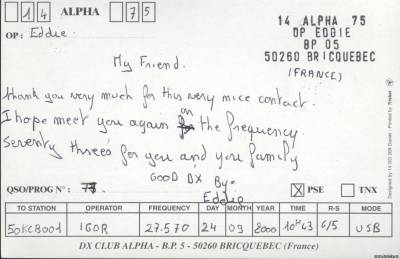 14 ALPHA 75
OP: Eddie
14 ALPHA 75
OP EDDIE
BP 05
50260 BRICQUEBEC
(FRANCE)
My Friend.
thank you very much for this very nice contact.
I hope meet you again on the frequency.
Seventy three's for you and you family
GOOD DX By=
Eddie
QSO/PROG N°:
X PSE TNX
TO STATION OPERATOR FREQUENCY DAY MONTH YEAR TIME R-S MODE
50KCB001 IGOR 27.570 24 09 2000 10H43 6/5 USB
DX CLUB ALPHA - B.P. 5 - 50260 BRICQUEBEC (France)